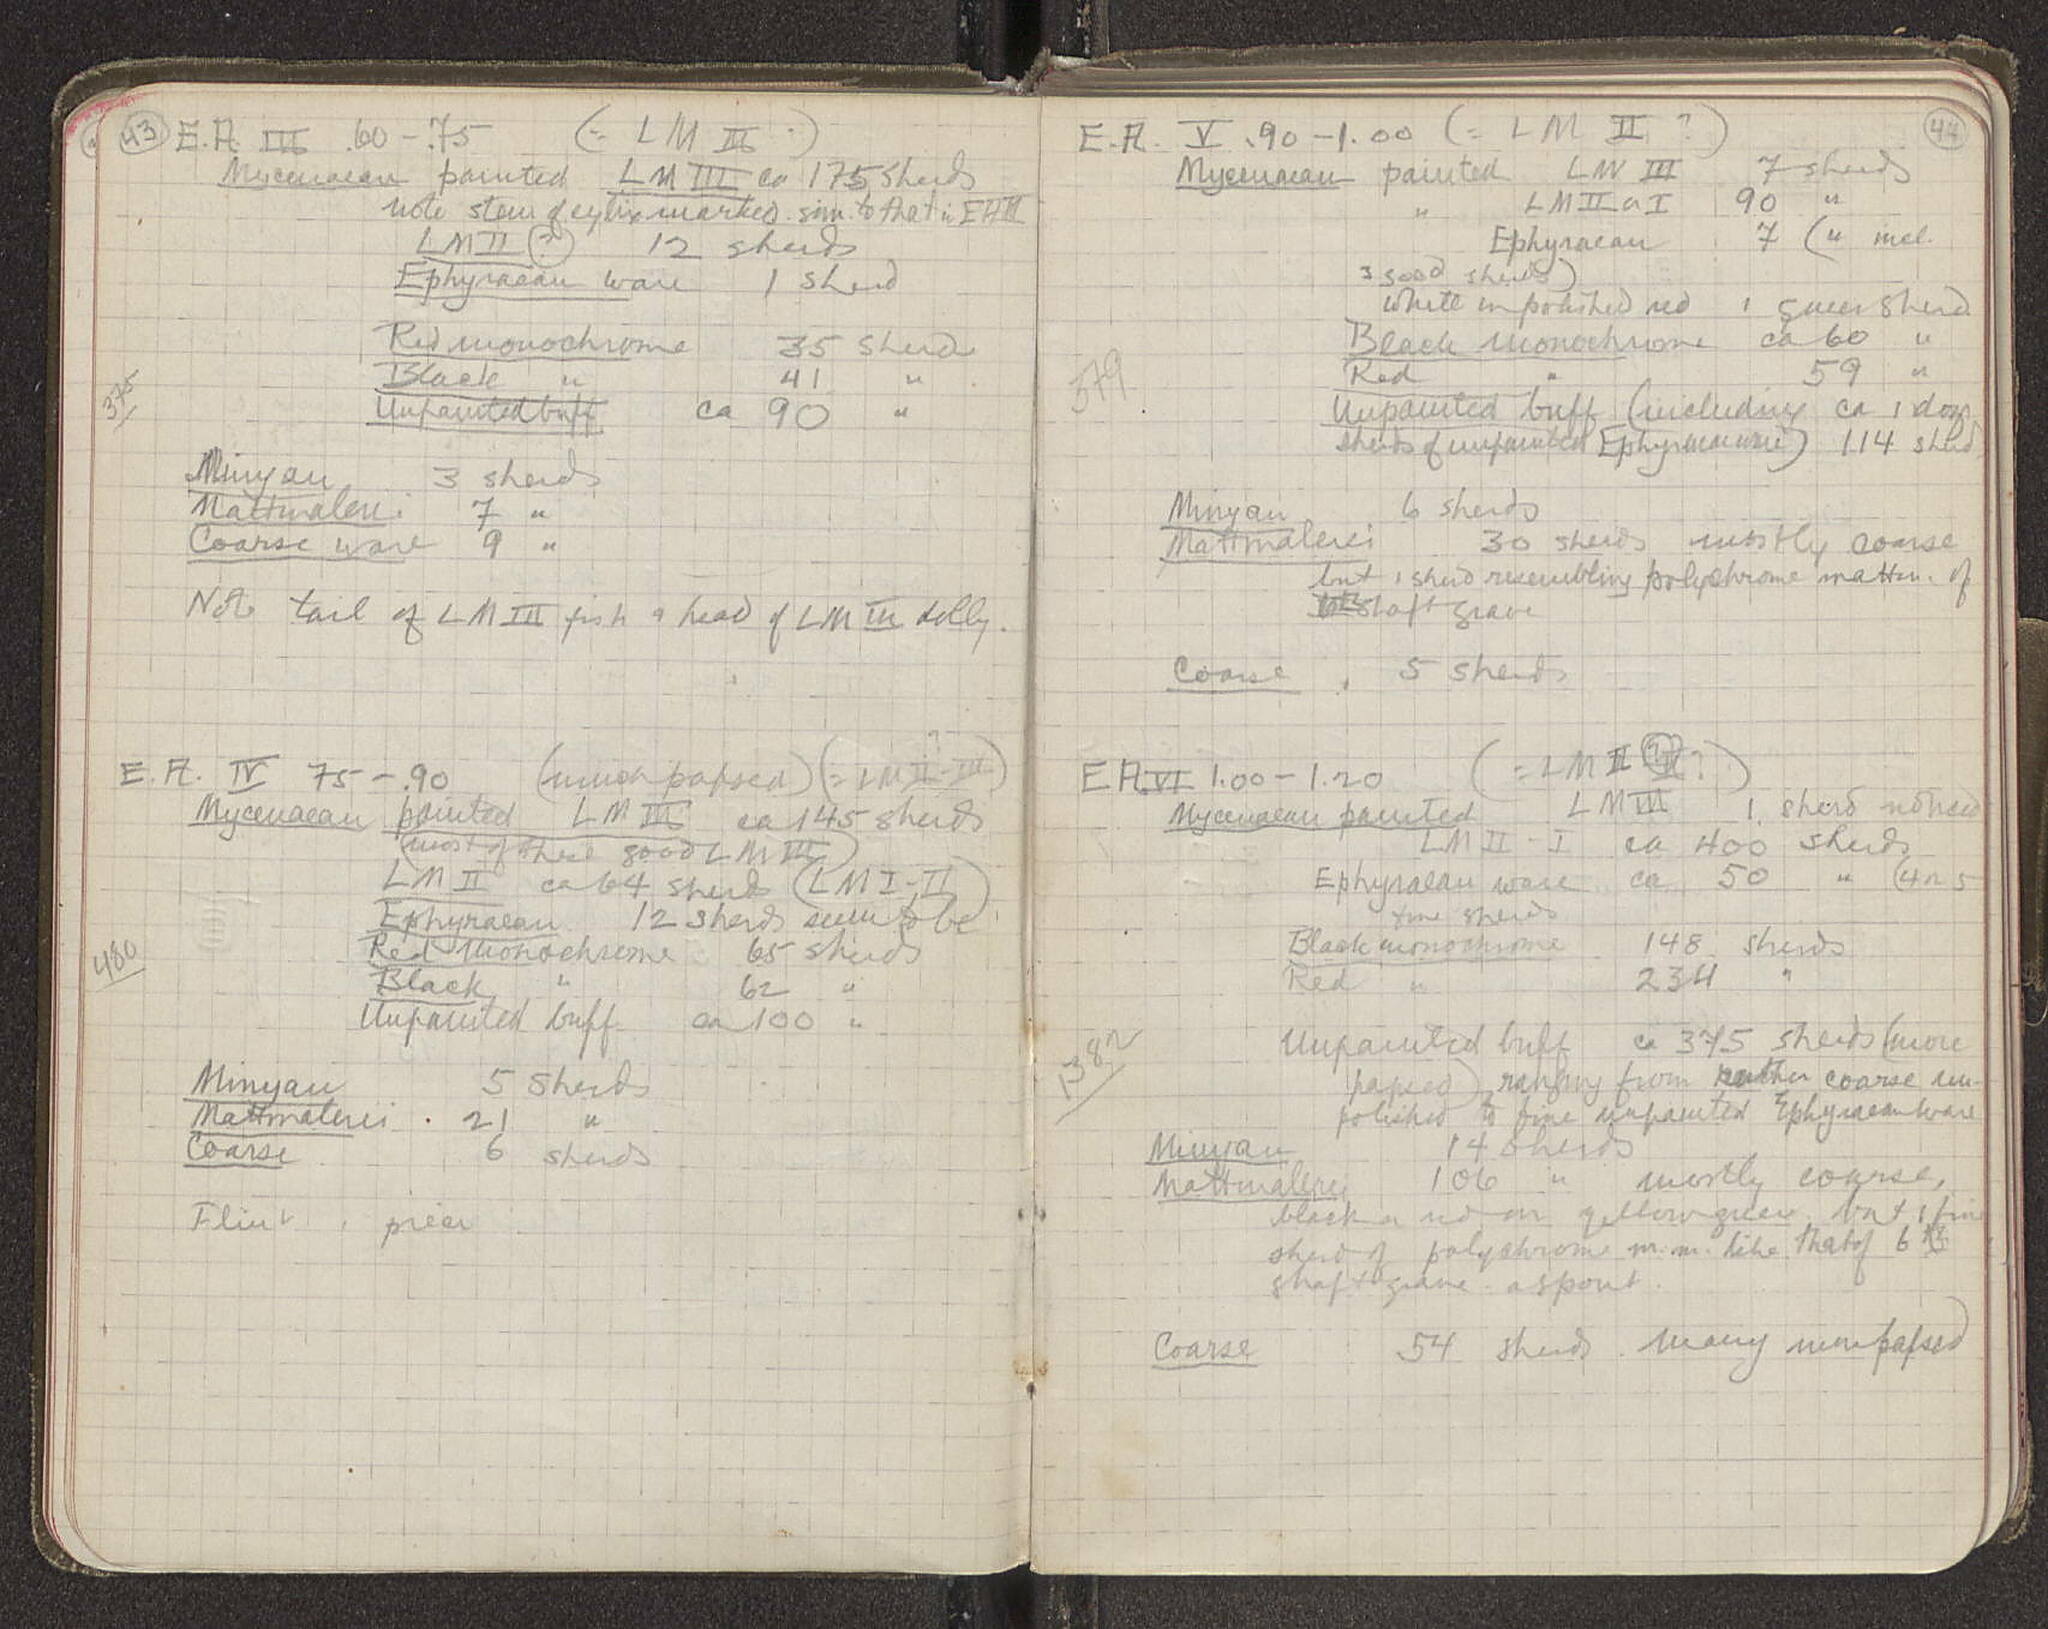 43 E.A. III .60-.75 (= LM III.)
Mycenaean painted LM III ca 175 sherds
note stem of cylix marked. sim. to that in EA II
LM II (?) 12 sherds
Ephyraean ware 1 sherd
Red monochrome 35 sherds
Black " 41 "
375
Unpainted buff ca 90 "
Minyan 3 sherds
Mattmalerei 7 "
Coarse ware 9 "
Note tail of LM III fish & head of LM III dolly.
E.A. IV 75-.90 (much papsed) (= LM II-III ?)
Mycenaean painted LM III ca 145 sherds
(most of these good LM III)
LM II ca 64 sherds (LM I-II)
Ephyraean 12 sherds seem to be
Red monochrome 65 sherds
480
Black " 62 "
Unpainted buff ca 100 "
Minyan 5 sherds
Mattmalerei . 21 "
Coarse 6 sherds
Flint 1 piece
44
E.A. V .90-1.00 (= LM II ?)
Mycenaean painted LM III 7 sherds
" LM II or I 90 "
Ephyraean 7 (" incl.
3 good sherds)
white on polished red 1 queer sherd
Black monochrome ca 60 "
579
Red " 59 "
Unpainted buff (including ca 1 doz
sherds of unpainted Ephyraean ware) 114 sherds
Minyan 6 sherds
Mattmalerei 30 sherds mostly coarse
but 1 sherd resembling polychrome mattm. of
shaft grave
Coarse 5 sherds
E.A. VI 1.00-1.20 (= LM II ?)
Mycenaean painted LM III 1 sherd noticed
LM II - I ca 400 sherds
Ephyraean ware ca 50 " (4 or 5
fine sherds
Black monochrome 148 sherds
Red " 234 "
1382
Unpainted buff ca 375 sherds (more
papsed) ranging from rather coarse un-
polished to fine unpainted Ephyraean ware
Minyan 14 sherds
Mattmalerei 106 " mostly coarse,
black or red on yellow green. but 1 fine
sherd of polychrome m.m. like that of 6th
shaft grave. a spout.
Coarse 54 sherds. many more papsed